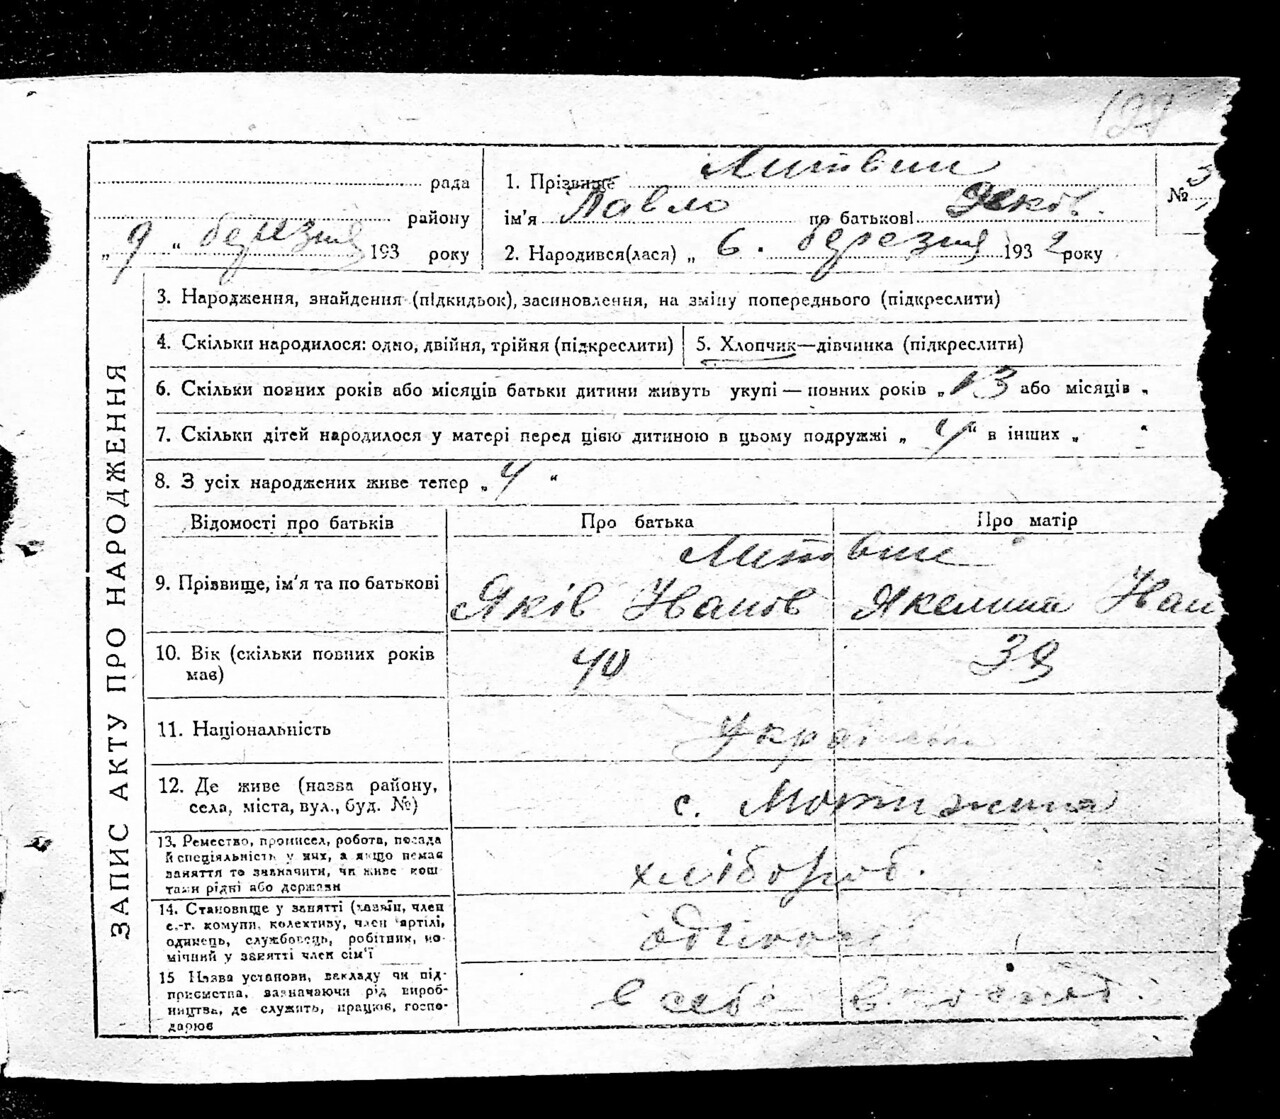 139
ЗАПИС АКТУ ПРО НАРОДЖЕННЯ
рада
району
„ 9 “ березня 193 року
1. Прізвище Литвин
ім'я Павло по батькові Яков.
№ 3
2. Народився(лася) „ 6. березня 1932 року
3. Народження, знайдення (підкидьок), засиновлення, на зміну попереднього (підкреслити)
4. Скільки народилося: одно, двійня, трійня (підкреслити)
5. Хлопчик—дівчинка (підкреслити)
6. Скільки повних років або місяців батьки дитини живуть укупі — повних років „ 13 або місяців „
7. Скільки дітей народилося у матері перед цією дитиною в цьому подружжі „ 4 “ в інших „ “
8. З усіх народжених живе тепер „ 4 “
Відомості про батьків Про батька Про матір
Литвин
9. Прізвище, ім'я та по батькові Яків Іванов Якелина Іван
10. Вік (скільки повних років 40 39
має)
11. Національність українці
12. Де живе (назва району,
села, міста, вул., буд. №) с. Мотижина
13. Ремество, промисел, робота, посада
й спеціяльність у них, а якщо немає
заняття то зазначити, чи живе кош
тами рідні або держави
хлібороб.
14. Становище у занятті (хазяїн, член
с.-г. комуни, колективу, член артілі,
одинець, службовець, робітник, по-
мічний у занятті член сім'ї
15 Назва установи, закладу чи під-
приємства, зазначаючи рід вироб-
ництва, де служить, працює, госпо-
дарює
в себе в